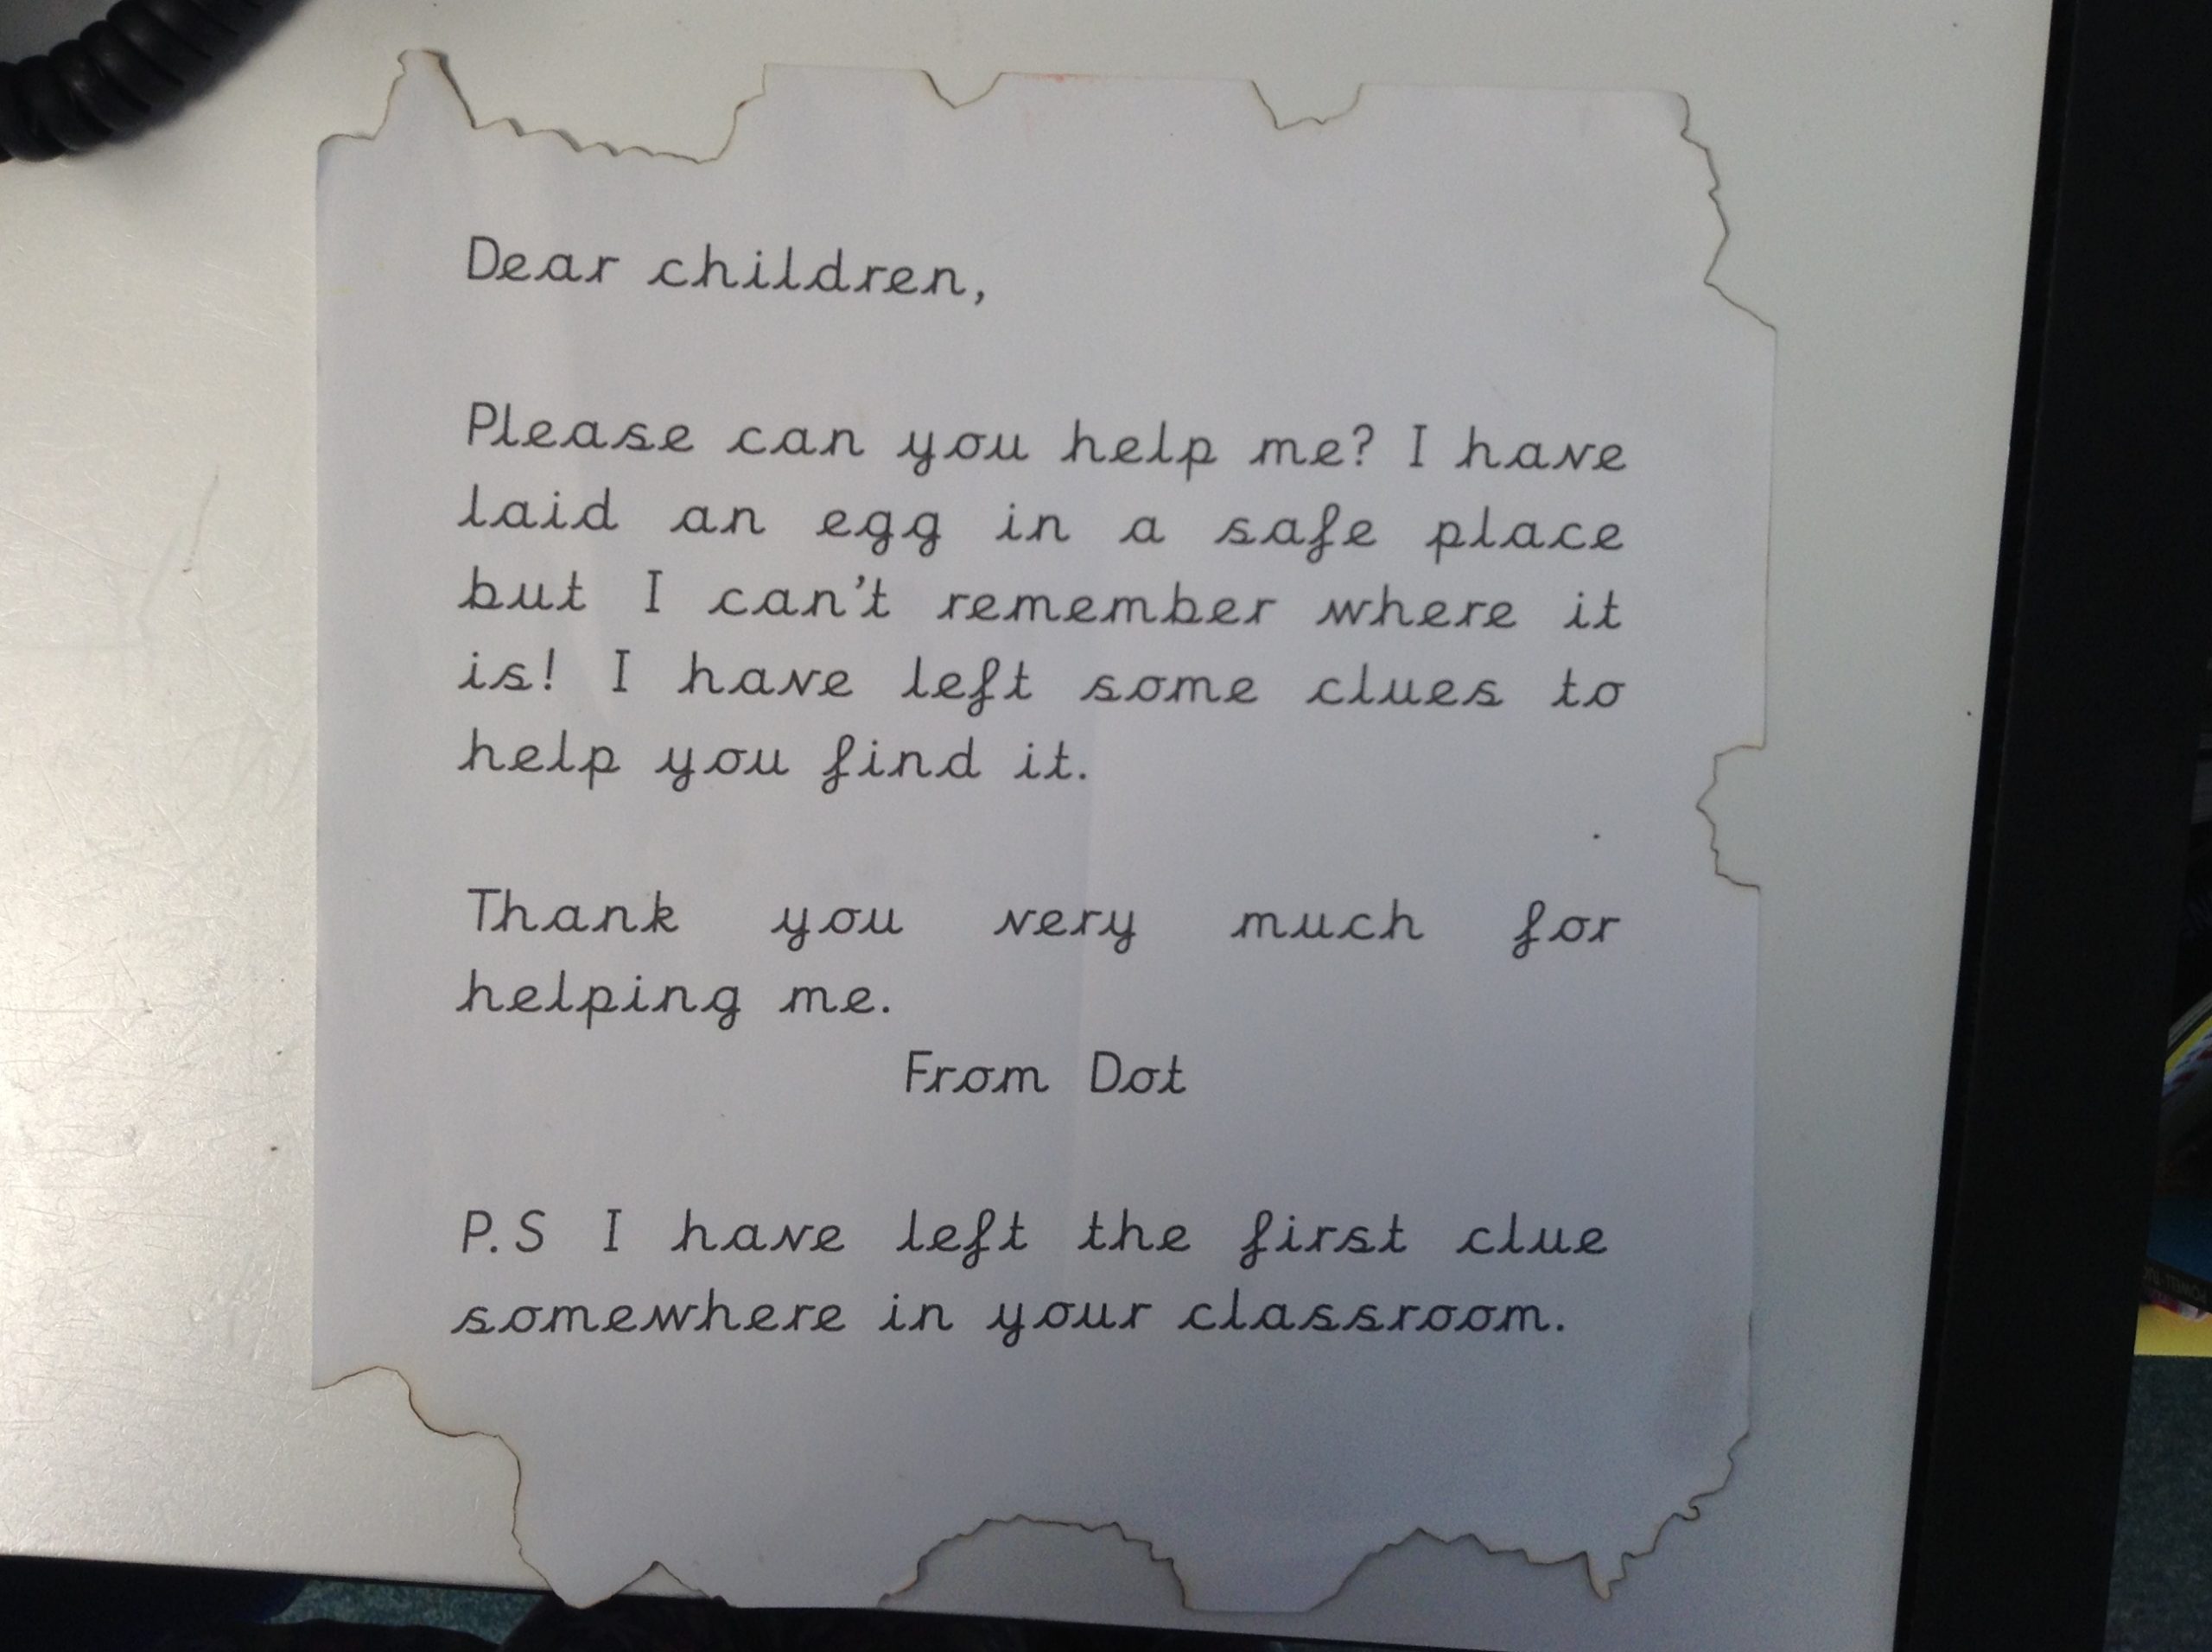 Dear children,
Please can you help me? I have
laid an egg in a safe place
but I can't remember where it
is! I have left some clues to
help you find it.
Thank you very much for
helping me.
From Dot
P.S I have left the first clue
somewhere in your classroom.